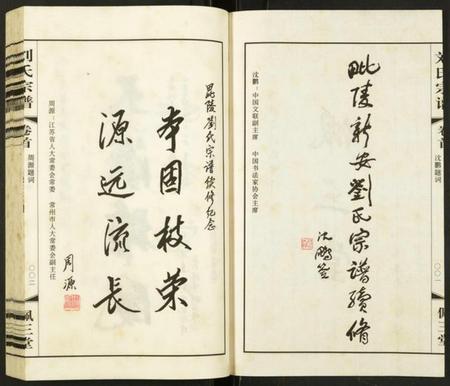 刘氏宗谱
卷首
沈鹏题词
〇〇一
佩三堂
沈鹏：中国文联副主席　中国书法家协会主席
毗陵新安劉氏宗譜續修
沈鵬签
毘陵劉氏宗谱续修纪念
本固枝荣
源远流长
周源
周源：江苏省人大常委会常委　常州市人大常委会副主任
刘氏宗谱
卷首
周源题词
〇〇二
佩三堂